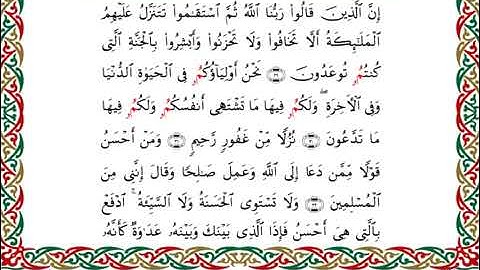 إِنَّ ٱلَّذِينَ قَالُوا۟ رَبُّنَا ٱللَّهُ ثُمَّ ٱسْتَقَـٰمُوا۟ تَتَنَزَّلُ عَلَيْهِمُ
ٱلْمَلَـٰٓئِكَةُ أَلَّا تَخَافُوا۟ وَلَا تَحْزَنُوا۟ وَأَبْشِرُوا۟ بِٱلْجَنَّةِ ٱلَّتِى
كُنتُمُۥ تُوعَدُونَ نَحْنُ أَوْلِيَآؤُكُمُۥ فِى ٱلْحَيَوٰةِ ٱلدُّنْيَا
وَفِى ٱلْأَخِرَةِ ۖ وَلَكُمُۥ فِيهَا مَا تَشْتَهِىٓ أَنفُسُكُمُۥ وَلَكُمُۥ فِيهَا
مَا تَدَّعُونَ نُزُلًا مِّنْ غَفُورٍ رَّحِيمٍ وَمَنْ أَحْسَنُ
قَوْلًا مِّمَّن دَعَآ إِلَى ٱللَّهِ وَعَمِلَ صَـٰلِحًا وَقَالَ إِنَّنِى مِنَ
ٱلْمُسْلِمِينَ وَلَا تَسْتَوِى ٱلْحَسَنَةُ وَلَا ٱلسَّيِّئَةُ ۚ ٱدْفَعْ
بِٱلَّتِى هِىَ أَحْسَنُ فَإِذَا ٱلَّذِى بَيْنَكَ وَبَيْنَهُۥ عَدَٰوَةٌ كَأَنَّهُۥ